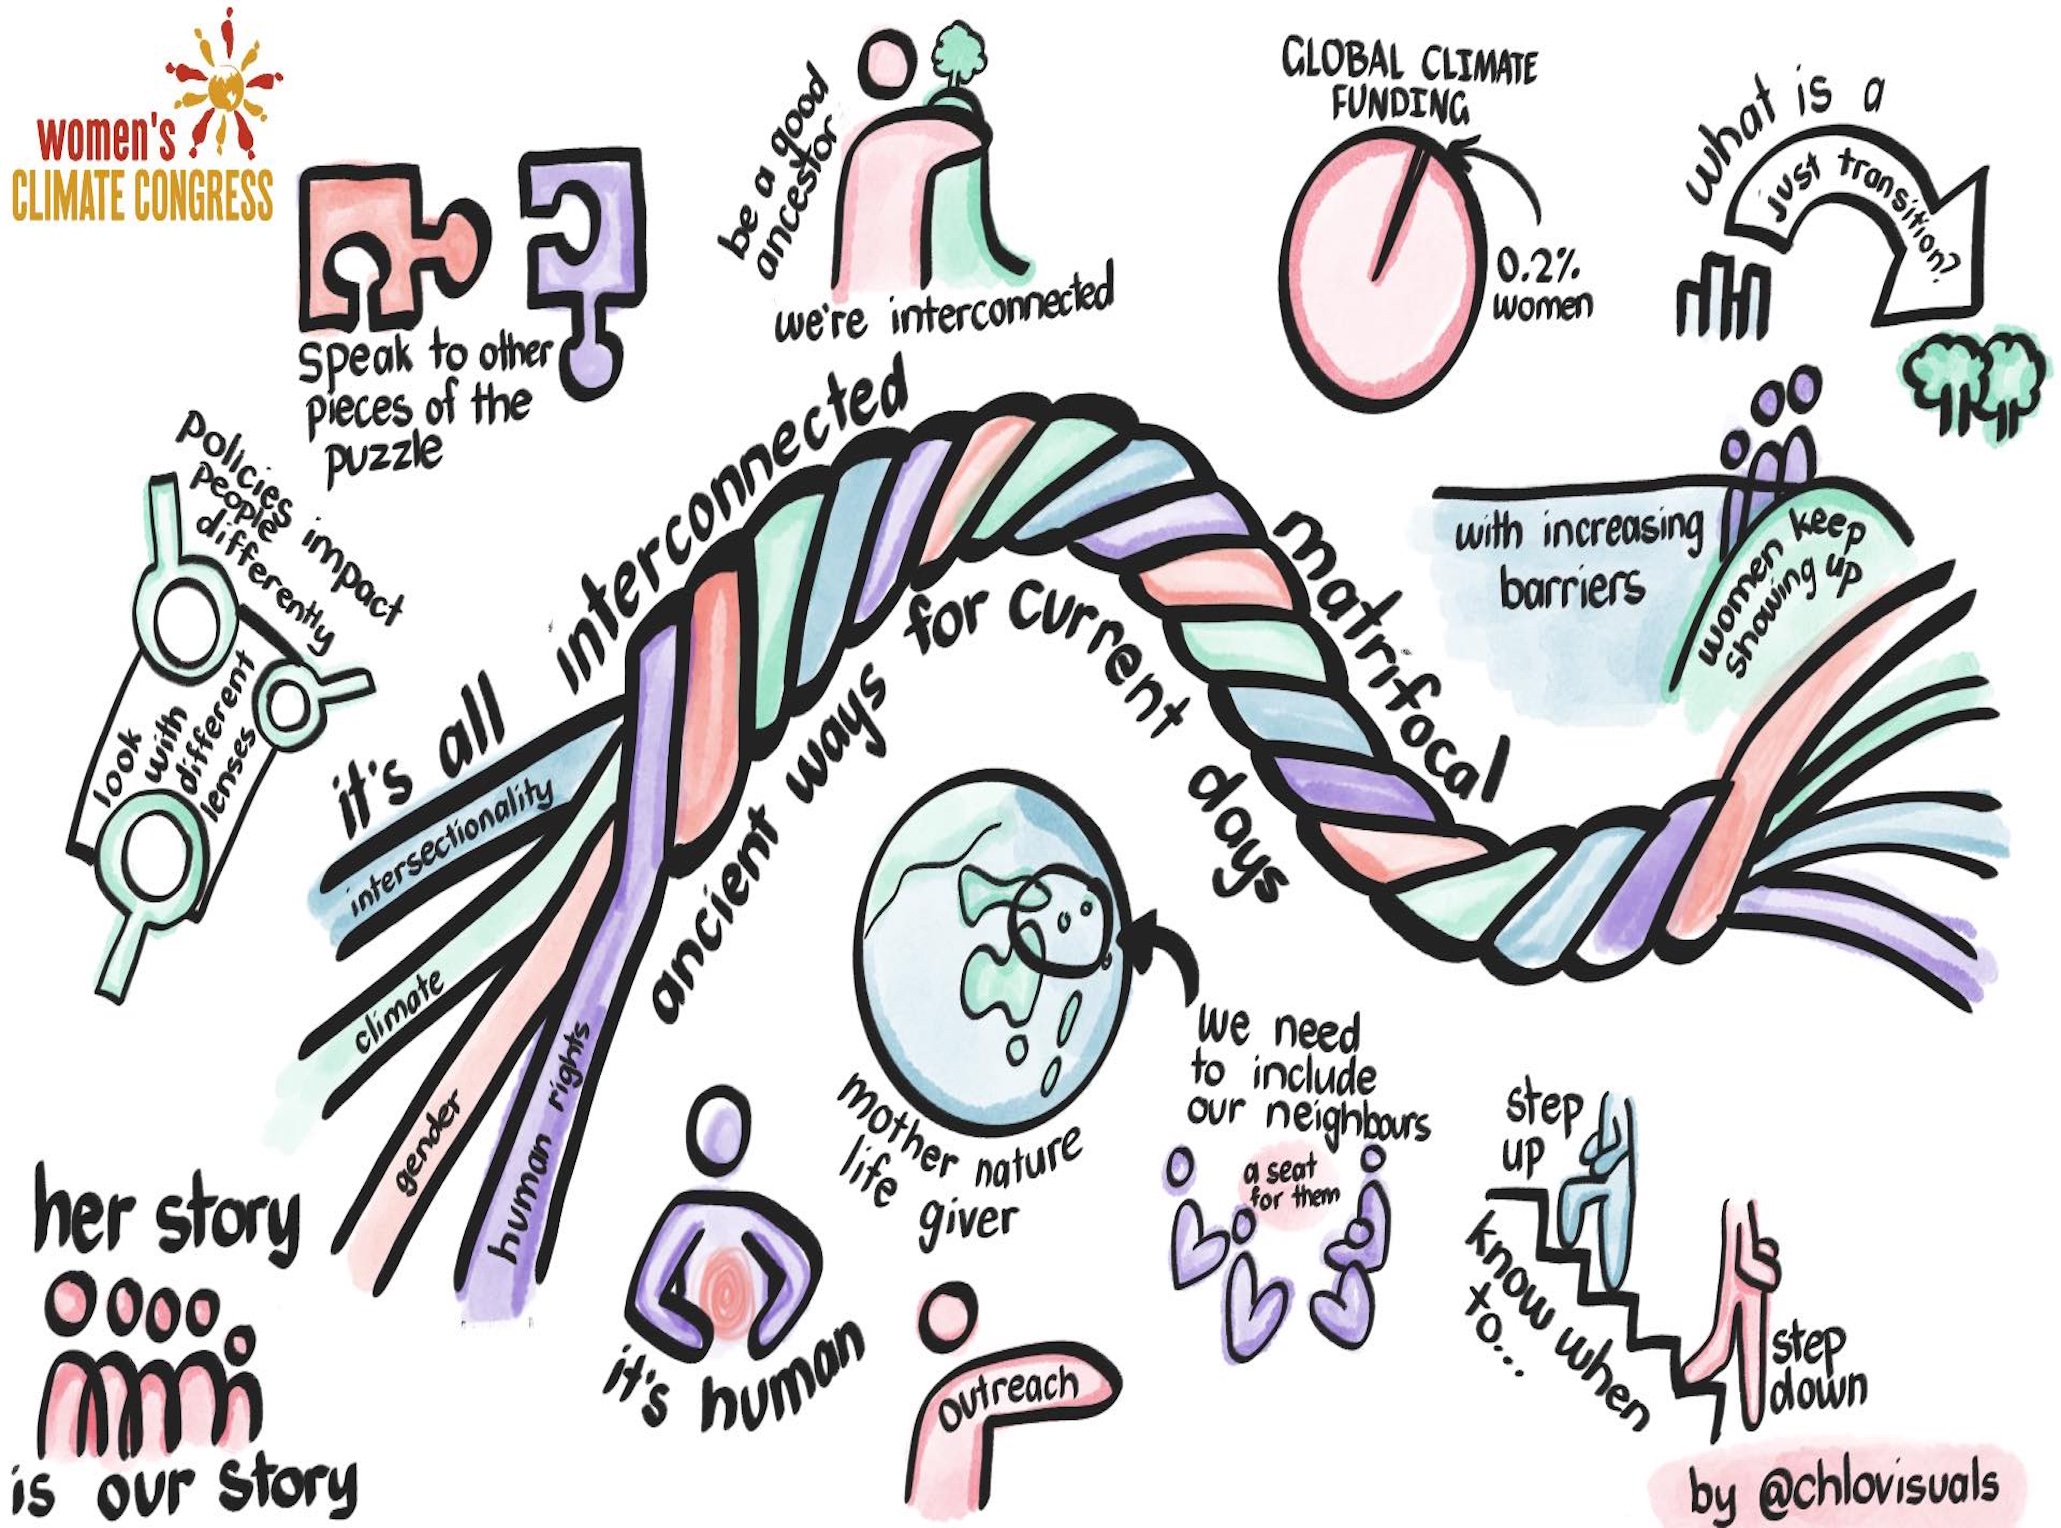 women's
CLIMATE CONGRESS
speak to other
pieces of the
puzzle
be a good
ancestor
we're interconnected
GLOBAL CLIMATE
FUNDING
0.2%
women
what is a
just transition?
policies impact
people
differently
look
with
different
lenses
with increasing
barriers
women keep
showing up
it's all interconnected
matrifocal
ancient ways for current days
intersectionality
climate
gender
human rights
mother nature
life giver
we need
to include
our neighbours
a seat
for them
step
up
know when
to...
step
down
her story
is our story
it's human
outreach
by @chlovisuals